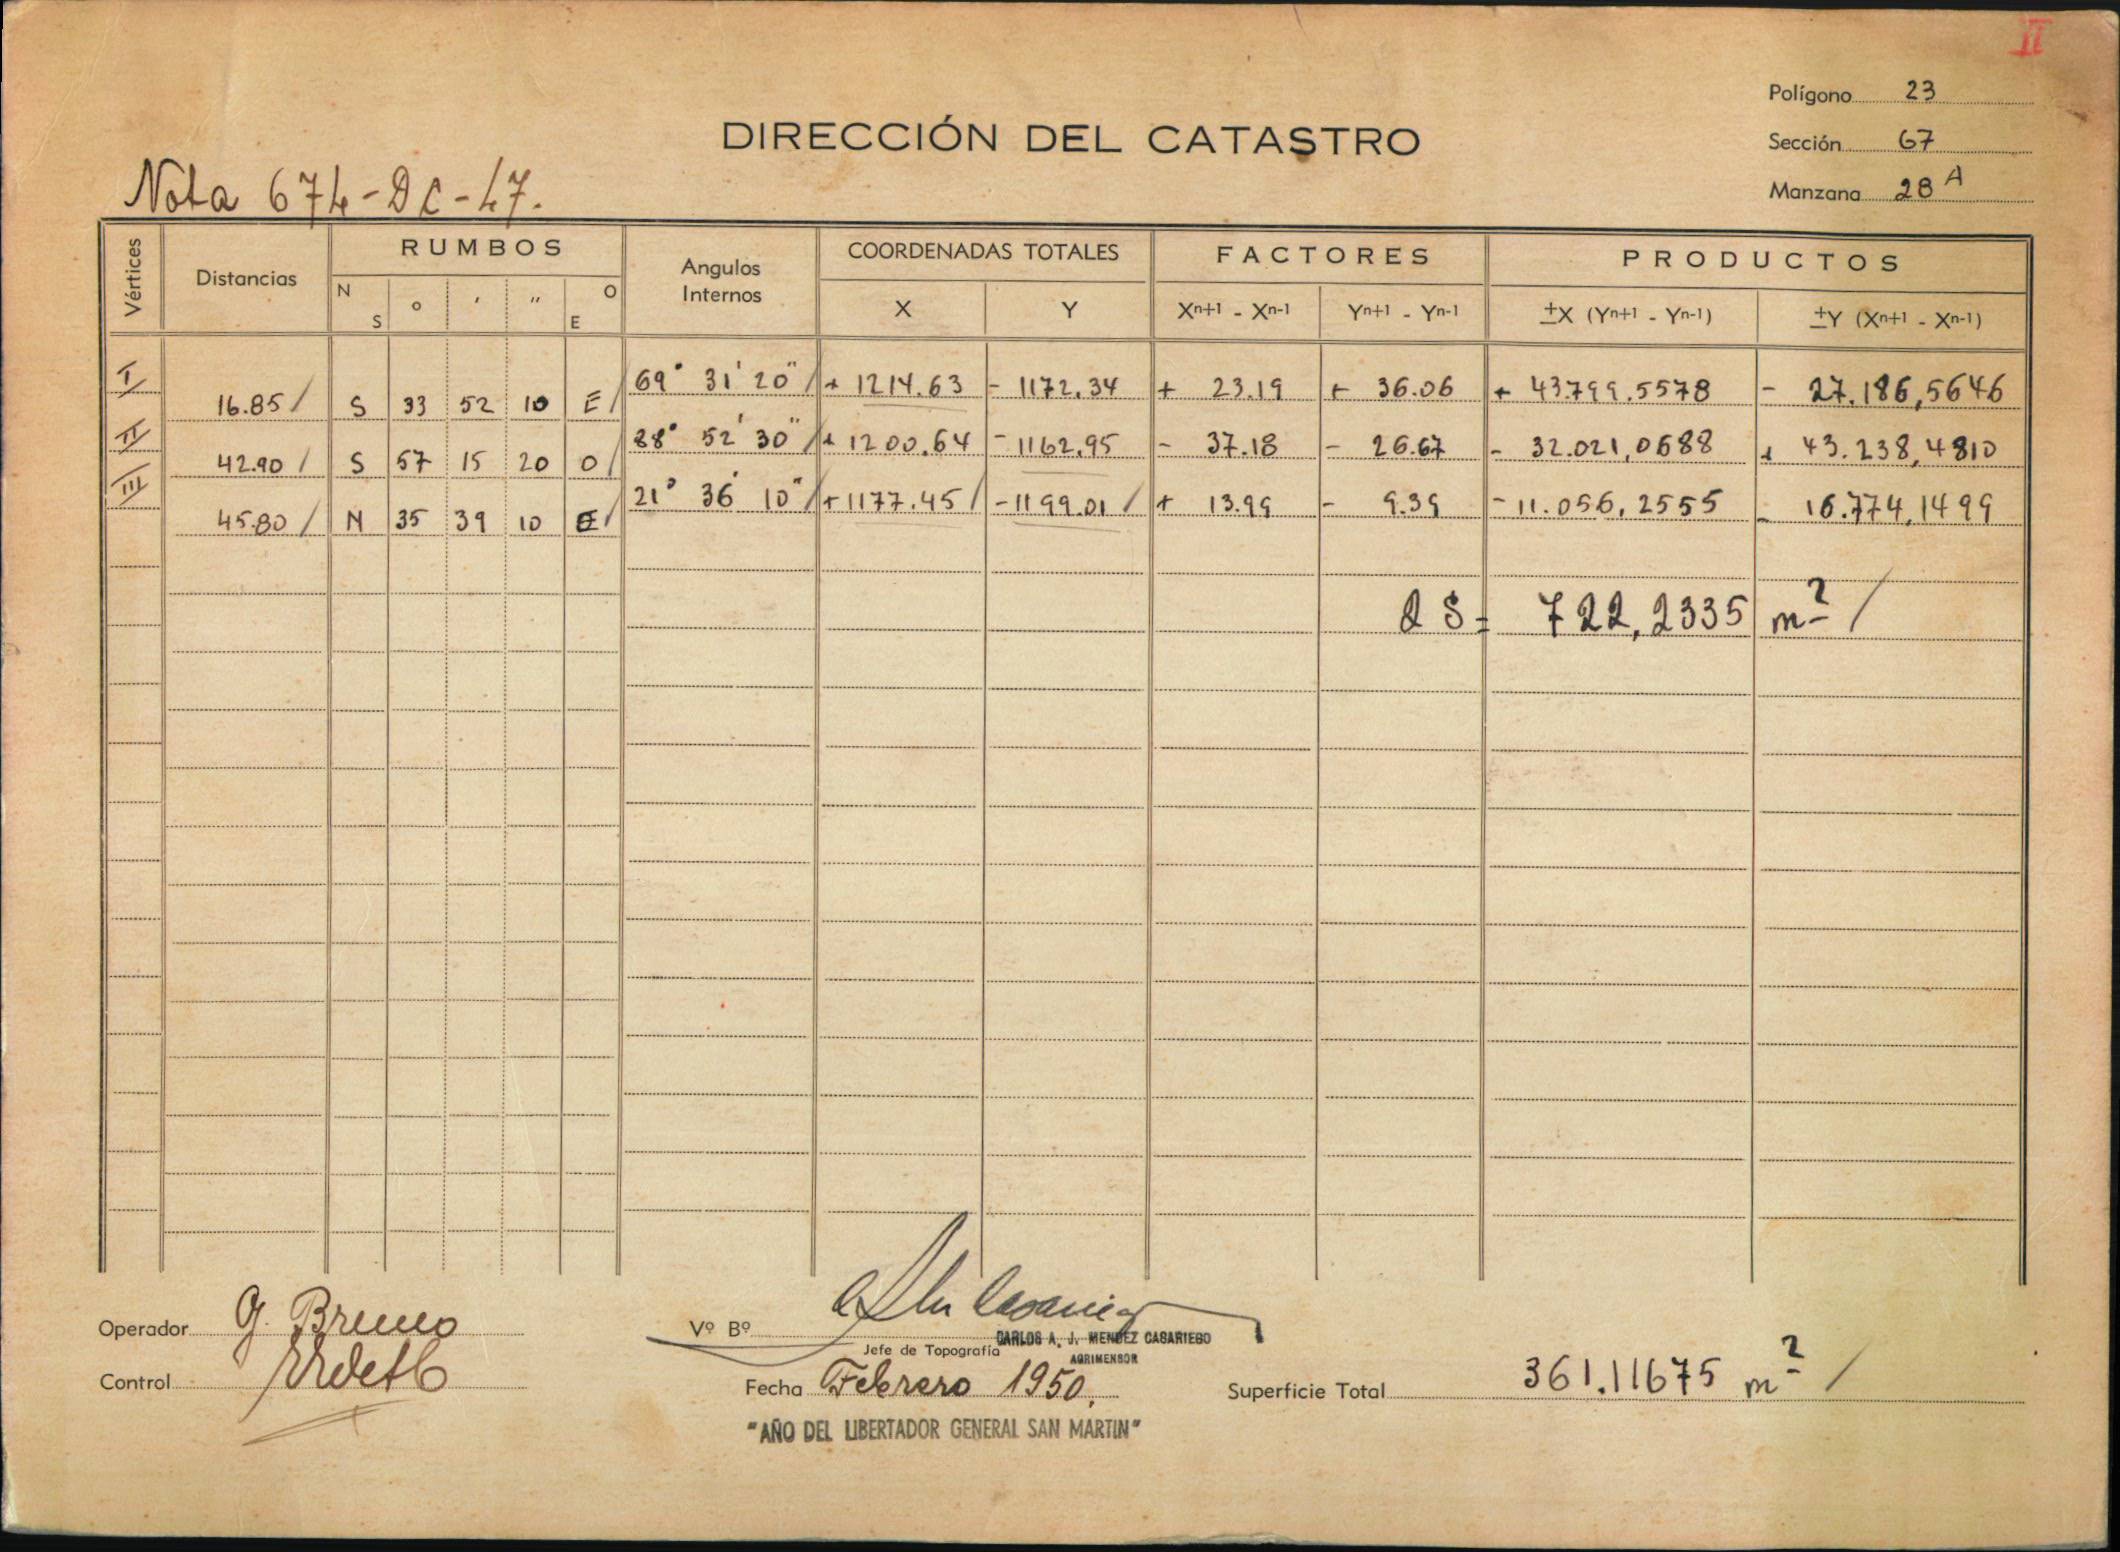 II
Polígono 23
DIRECCIÓN DEL CATASTRO
Sección 67
Nota 674-DC-47.
Manzana 28 A
Vértices Distancias RUMBOS Angulos Internos COORDENADAS TOTALES FACTORES PRODUCTOS
N S ° ' " O E X Y Xn+1 - Xn-1 Yn+1 - Yn-1 ±X (Yn+1 - Yn-1) ±Y (Xn+1 - Xn-1)
I 69° 31' 20" / + 1214.63 - 1172.34 + 23.19 + 36.06 + 43.799.5578 - 27.186,5646
16.85 / S 33 52 10 E /
II 88° 52' 30" / + 1200.64 - 1162.95 - 37.18 - 26.67 - 32.021,0688 + 43.238,4810
42.90 / S 57 15 20 O /
III 21° 36' 10" / + 1177.45 / - 1199.01 / + 13.99 - 9.39 - 11.056,2555 - 16.774,1499
45.80 / N 35 39 10 E /
2 S = 722,2335 m² /
Operador G. Bruno
Vº Bº
CARLOS A. J. MENDEZ CASARIEGO
Jefe de Topografía
AGRIMENSOR
Control
Fecha Febrero 1950.
Superficie Total 361.11675 m² /
"AÑO DEL LIBERTADOR GENERAL SAN MARTIN"